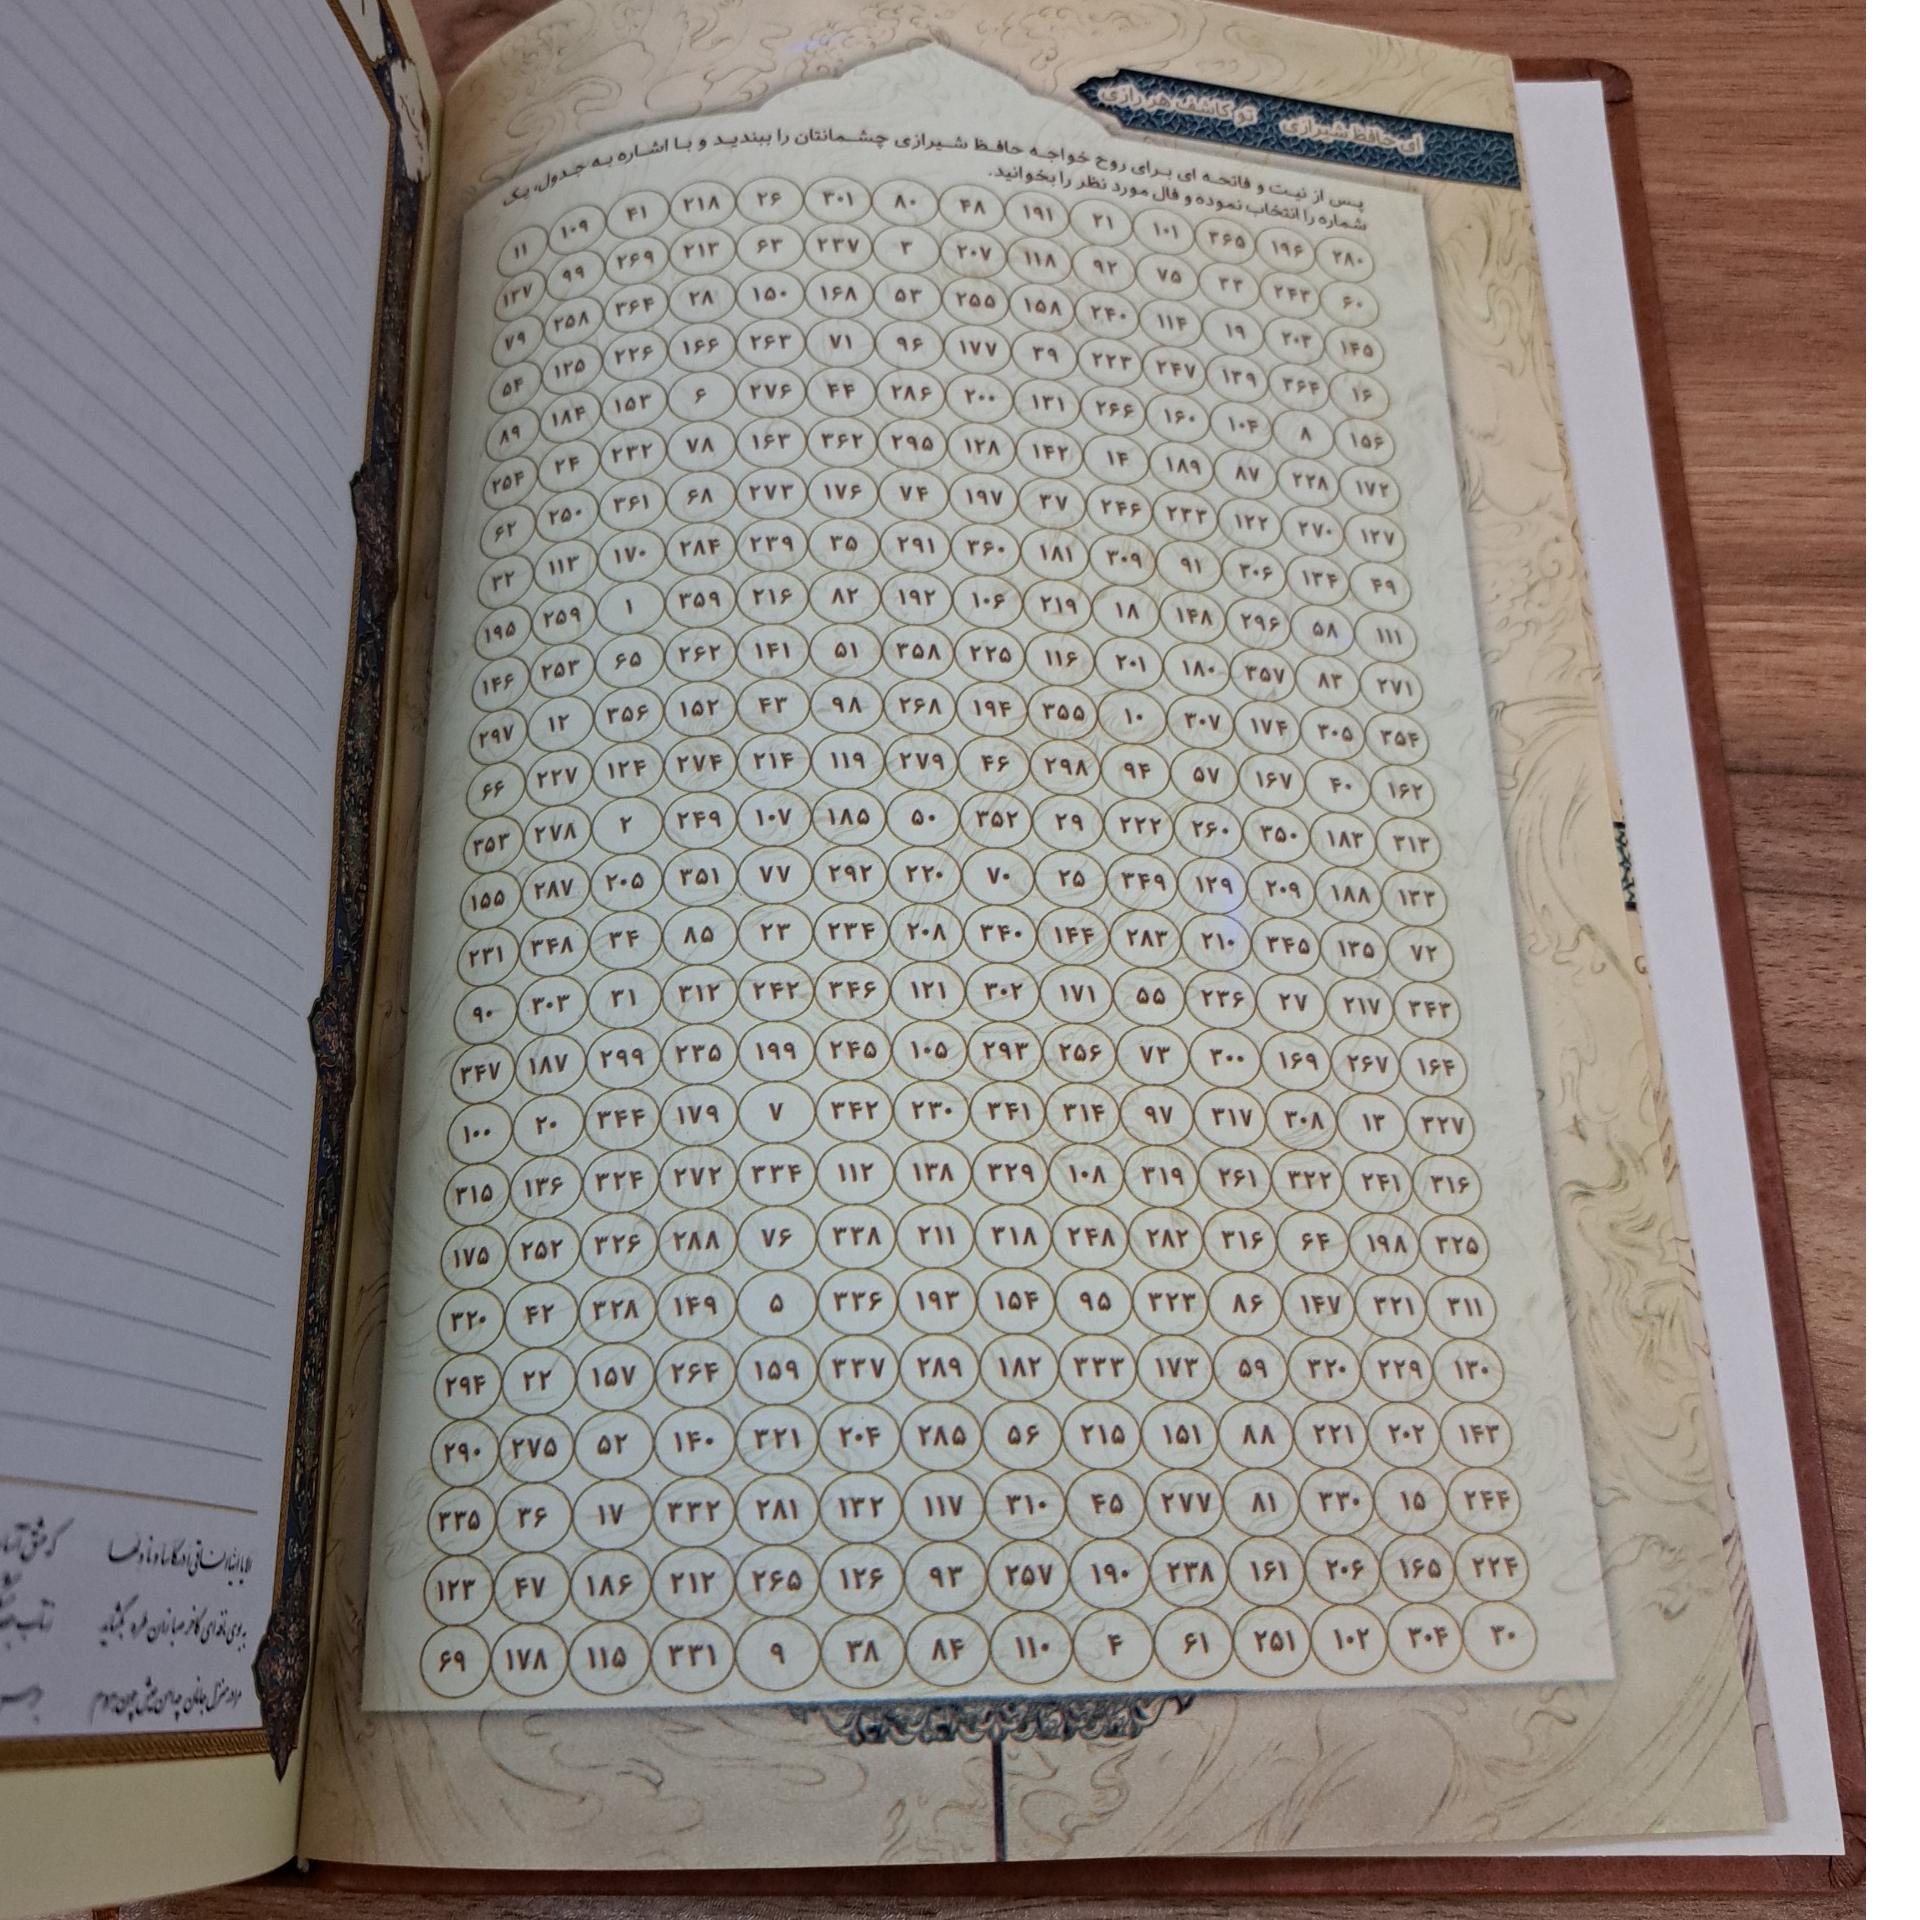 ای حافظ شیرازی تو کاشف هر رازی
پس از نیت و فاتحه ای برای روح خواجه حافظ شیرازی چشمانتان را ببندید و با اشاره به جدول، یک
شماره را انتخاب نموده و فال مورد نظر را بخوانید.
۲۸۰ ۱۹۶ ۳۶۵ ۱۰۱ ۲۱ ۱۹۱ ۴۸ ۸۰ ۳۰۱ ۲۶ ۲۱۸ ۴۱ ۱۰۹ ۱۱
۶۰ ۲۴۳ ۳۳ ۷۵ ۹۲ ۱۱۸ ۲۰۷ ۳ ۲۳۷ ۶۳ ۲۱۳ ۲۶۹ ۹۹ ۱۳۷
۱۴۵ ۲۰۳ ۱۹ ۱۱۴ ۲۴۰ ۱۵۸ ۲۵۵ ۵۳ ۱۶۸ ۱۵۰ ۲۸ ۳۶۴ ۲۵۸ ۷۹
۱۶ ۳۶۴ ۱۳۹ ۲۴۷ ۲۲۳ ۳۹ ۱۷۷ ۹۶ ۷۱ ۲۶۳ ۱۶۶ ۲۲۶ ۱۲۵ ۵۴
۱۵۶ ۸ ۱۰۴ ۱۶۰ ۲۶۶ ۱۳۱ ۲۰۰ ۲۸۶ ۴۴ ۲۷۶ ۶ ۱۵۳ ۱۸۴ ۸۹
۱۷۲ ۲۲۸ ۸۷ ۱۸۹ ۱۴ ۱۴۲ ۱۲۸ ۲۹۵ ۳۶۲ ۱۶۳ ۷۸ ۲۳۲ ۲۴ ۲۵۴
۱۲۷ ۲۷۰ ۱۲۲ ۲۳۳ ۲۴۶ ۳۷ ۱۹۷ ۷۴ ۱۷۶ ۲۷۳ ۶۸ ۳۶۱ ۲۵۰ ۶۲
۴۹ ۱۳۴ ۳۰۶ ۹۱ ۳۰۹ ۱۸۱ ۳۶۰ ۲۹۱ ۳۵ ۲۳۹ ۲۸۴ ۱۷۰ ۱۱۳ ۳۲
۱۱۱ ۵۸ ۲۹۶ ۱۴۸ ۱۸ ۲۱۹ ۱۰۶ ۱۹۲ ۸۲ ۲۱۶ ۳۵۹ ۱ ۲۵۹ ۱۹۵
۲۷۱ ۸۳ ۳۵۷ ۱۸۰ ۲۰۱ ۱۱۶ ۲۲۵ ۳۵۸ ۵۱ ۱۴۱ ۲۶۲ ۶۵ ۲۵۳ ۱۴۶
۳۵۴ ۳۰۵ ۱۷۴ ۳۰۷ ۱۰ ۳۵۵ ۱۹۴ ۲۶۸ ۹۸ ۴۳ ۱۵۲ ۳۵۶ ۱۲ ۲۹۷
۱۶۲ ۴۰ ۱۶۷ ۵۷ ۹۴ ۲۹۸ ۴۶ ۲۷۹ ۱۱۹ ۲۱۴ ۲۷۴ ۱۲۴ ۲۲۷ ۶۶
۳۱۳ ۱۸۳ ۳۵۰ ۲۶۰ ۲۲۲ ۲۹ ۳۵۲ ۵۰ ۱۸۵ ۱۰۷ ۲۴۹ ۲ ۲۷۸ ۳۵۳
۱۳۳ ۱۸۸ ۲۰۹ ۱۲۹ ۳۴۹ ۲۵ ۷۰ ۲۲۰ ۲۹۲ ۷۷ ۳۵۱ ۲۰۵ ۲۸۷ ۱۵۵
۷۲ ۱۳۵ ۳۴۵ ۲۱۰ ۲۸۳ ۱۴۴ ۳۴۰ ۲۰۸ ۲۳۴ ۲۳ ۸۵ ۳۴ ۳۴۸ ۲۳۱
۳۴۳ ۲۱۷ ۲۷ ۲۳۶ ۵۵ ۱۷۱ ۳۰۲ ۱۲۱ ۳۴۶ ۲۴۲ ۳۱۲ ۳۱ ۳۰۳ ۹۰
۱۶۴ ۲۶۷ ۱۶۹ ۳۰۰ ۷۳ ۲۵۶ ۲۹۳ ۱۰۵ ۲۴۵ ۱۹۹ ۲۳۵ ۲۹۹ ۱۸۷ ۳۴۷
۳۲۷ ۱۳ ۳۰۸ ۳۱۷ ۹۷ ۳۱۴ ۳۴۱ ۲۳۰ ۳۴۲ ۷ ۱۷۹ ۳۴۴ ۲۰ ۱۰۰
۳۱۶ ۲۴۱ ۳۲۲ ۲۶۱ ۳۱۹ ۱۰۸ ۳۲۹ ۱۳۸ ۱۱۲ ۳۳۴ ۲۷۲ ۳۲۴ ۱۳۶ ۳۱۵
۳۲۵ ۱۹۸ ۶۴ ۳۱۶ ۲۸۲ ۲۴۸ ۳۱۸ ۲۱۱ ۳۳۸ ۷۶ ۲۸۸ ۳۲۶ ۲۵۲ ۱۷۵
۳۱۱ ۳۲۱ ۱۴۷ ۸۶ ۳۲۳ ۹۵ ۱۵۴ ۱۹۳ ۳۳۶ ۵ ۱۴۹ ۳۲۸ ۴۲ ۳۲۰
۱۳۰ ۲۲۹ ۳۲۰ ۵۹ ۱۷۳ ۳۳۳ ۱۸۲ ۲۸۹ ۳۳۷ ۱۵۹ ۲۶۴ ۱۵۷ ۲۲ ۲۹۴
۱۴۳ ۲۰۲ ۲۲۱ ۸۸ ۱۵۱ ۲۱۵ ۵۶ ۲۸۵ ۲۰۴ ۳۲۱ ۱۴۰ ۵۲ ۲۷۵ ۲۹۰
۲۴۴ ۱۵ ۳۳۰ ۸۱ ۲۷۷ ۴۵ ۳۱۰ ۱۱۷ ۱۳۲ ۲۸۱ ۳۳۲ ۱۷ ۳۶ ۳۳۵
۲۲۴ ۱۶۵ ۲۰۶ ۱۶۱ ۲۳۸ ۱۹۰ ۲۵۷ ۹۳ ۱۲۶ ۲۶۵ ۲۱۲ ۱۸۶ ۴۷ ۱۲۳
۳۰ ۳۰۴ ۱۰۲ ۲۵۱ ۶۱ ۴ ۱۱۰ ۸۴ ۳۸ ۹ ۳۳۱ ۱۱۵ ۱۷۸ ۶۹
الا یا ایها الساقی ادر کاسا و ناولها که عشق آسان
به بوی نافه‌ای کاخر صبا زان طره بگشاید ز تاب
مرا در منزل جانان چه امن عیش چون هر دم